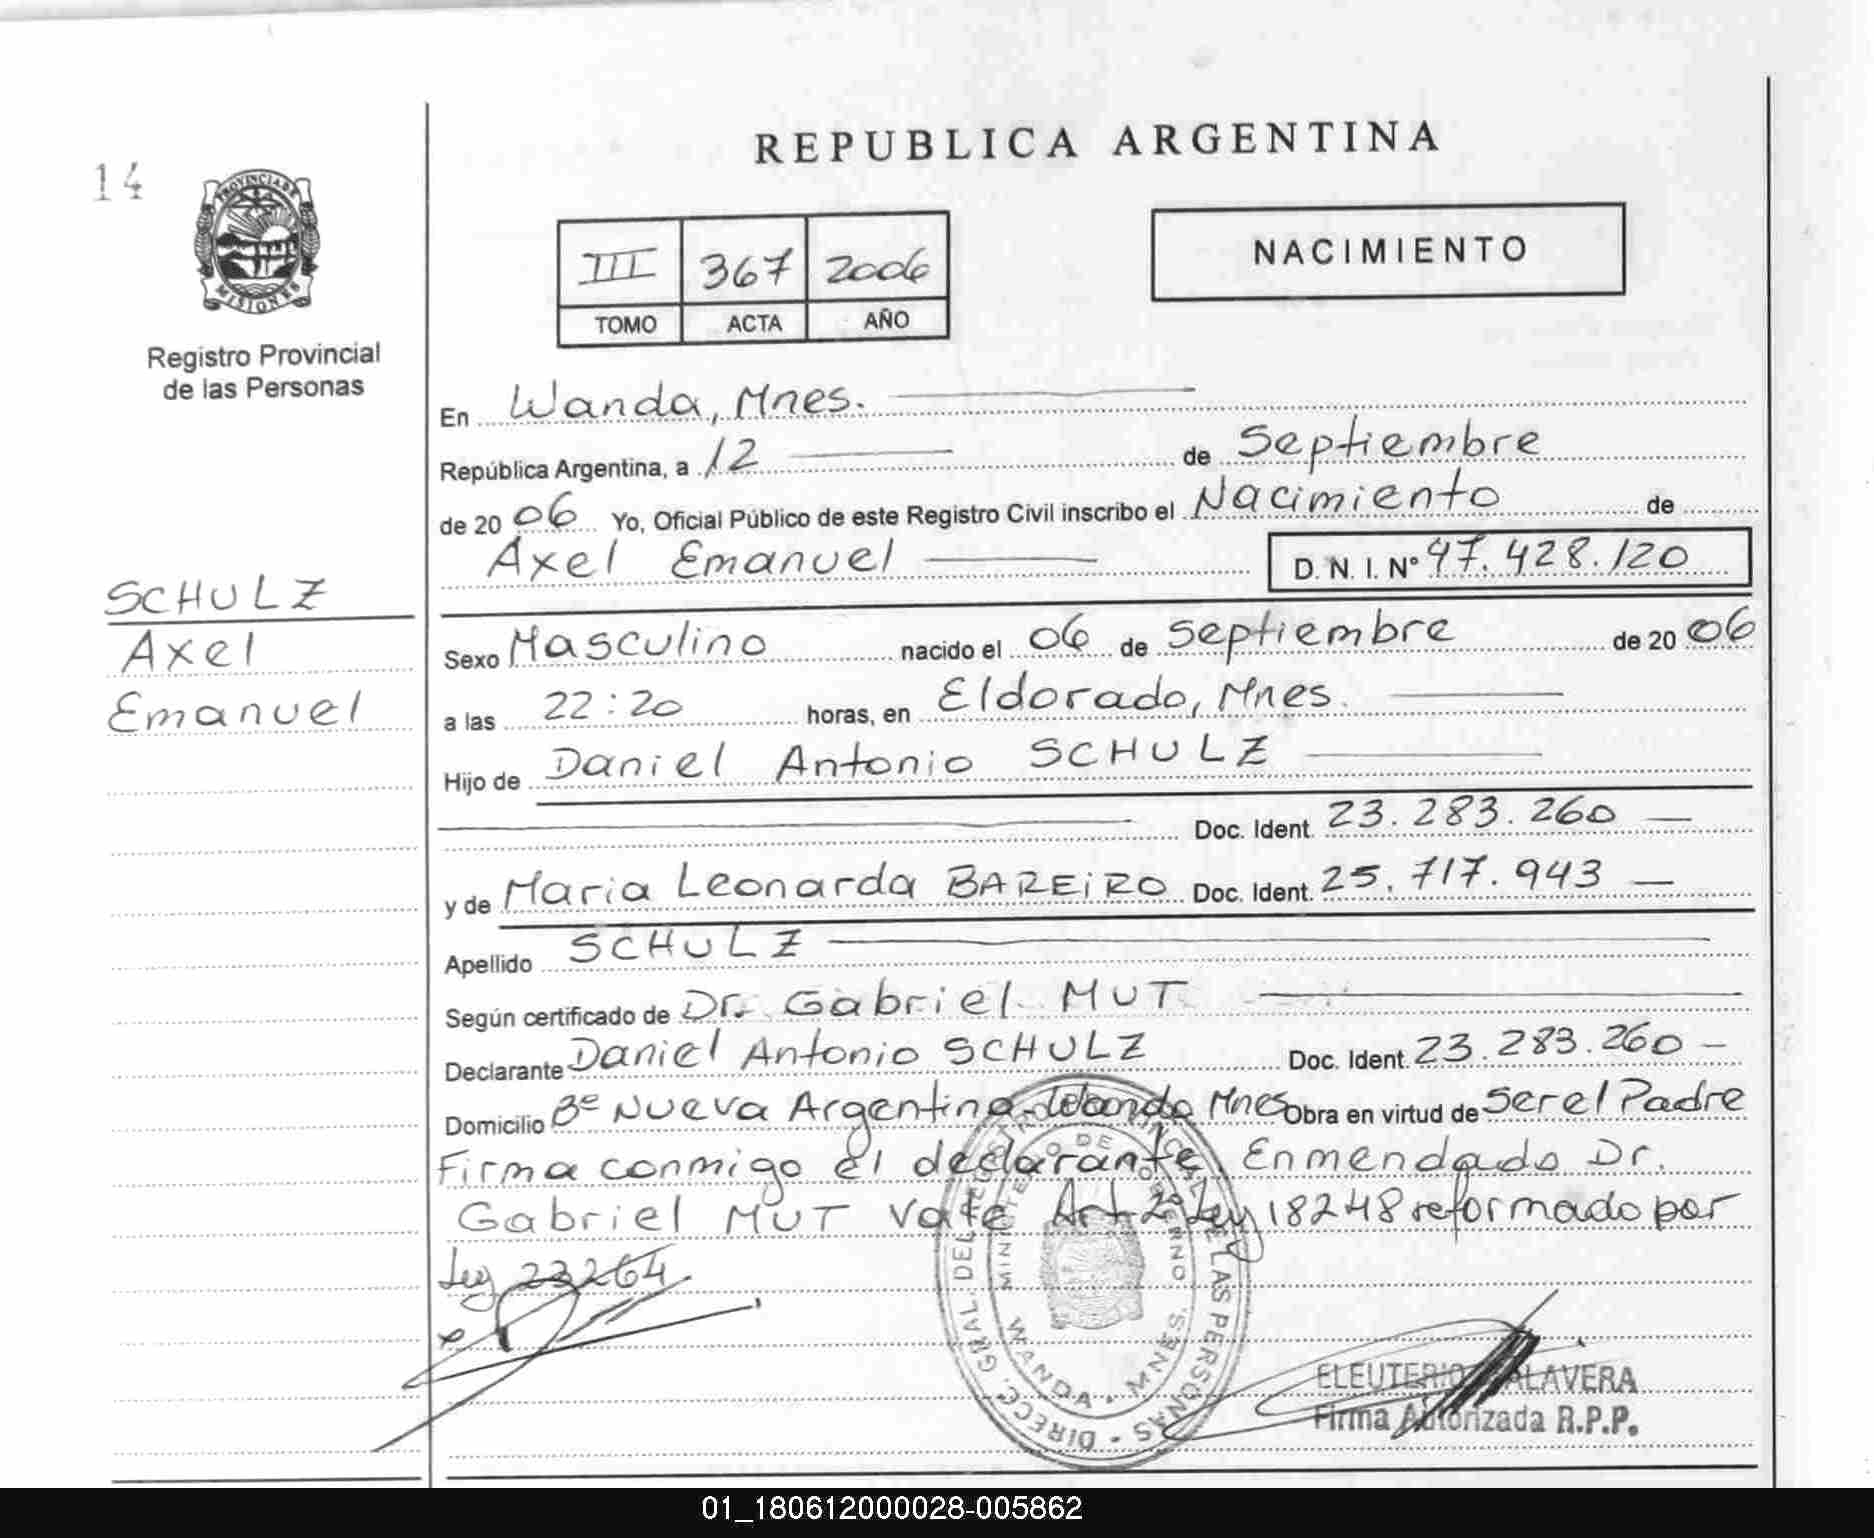 REPUBLICA ARGENTINA
14
PROVINCIA DE
MISIONES
Registro Provincial
de las Personas
III 367 2006
TOMO ACTA AÑO
NACIMIENTO
En Wanda, Mnes.
República Argentina, a 12 de Septiembre
de 2006 Yo, Oficial Público de este Registro Civil inscribo el Nacimiento de
Axel Emanuel D. N. I. Nº 47.428.120
SCHULZ
Axel
Emanuel
Sexo Masculino nacido el 06 de Septiembre de 2006
a las 22:20 horas, en Eldorado, Mnes.
Hijo de Daniel Antonio SCHULZ
Doc. Ident. 23.283.260
y de Maria Leonarda BAREiRO Doc. Ident. 25.717.943
Apellido SCHULZ
Según certificado de Dr. Gabriel MUT
Declarante Daniel Antonio SCHULZ Doc. Ident. 23.283.260
Domicilio Bº Nueva Argentina-Wanda Mnes Obra en virtud de Ser el Padre
Firma conmigo el declarante. Enmendado Dr.
Gabriel MUT Vale Art 2º Ley 18248 reformado por
Ley 23264
DIRECC. GRAL. DEL REGISTRO PROVINCIAL DE LAS PERSONAS
MINISTERIO DE GOBIERNO
WANDA - MNES.
ELEUTERIO TALAVERA
Firma Autorizada R.P.P.
01_180612000028-005862